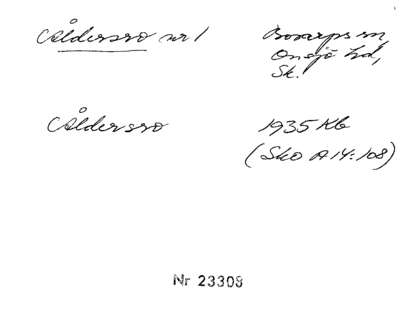 Åldersro nr 1
Bosarps sn,
Onsjö hd,
Sk.
Åldersro
1935 Kb
(Sko A14:108)
Nr 23308